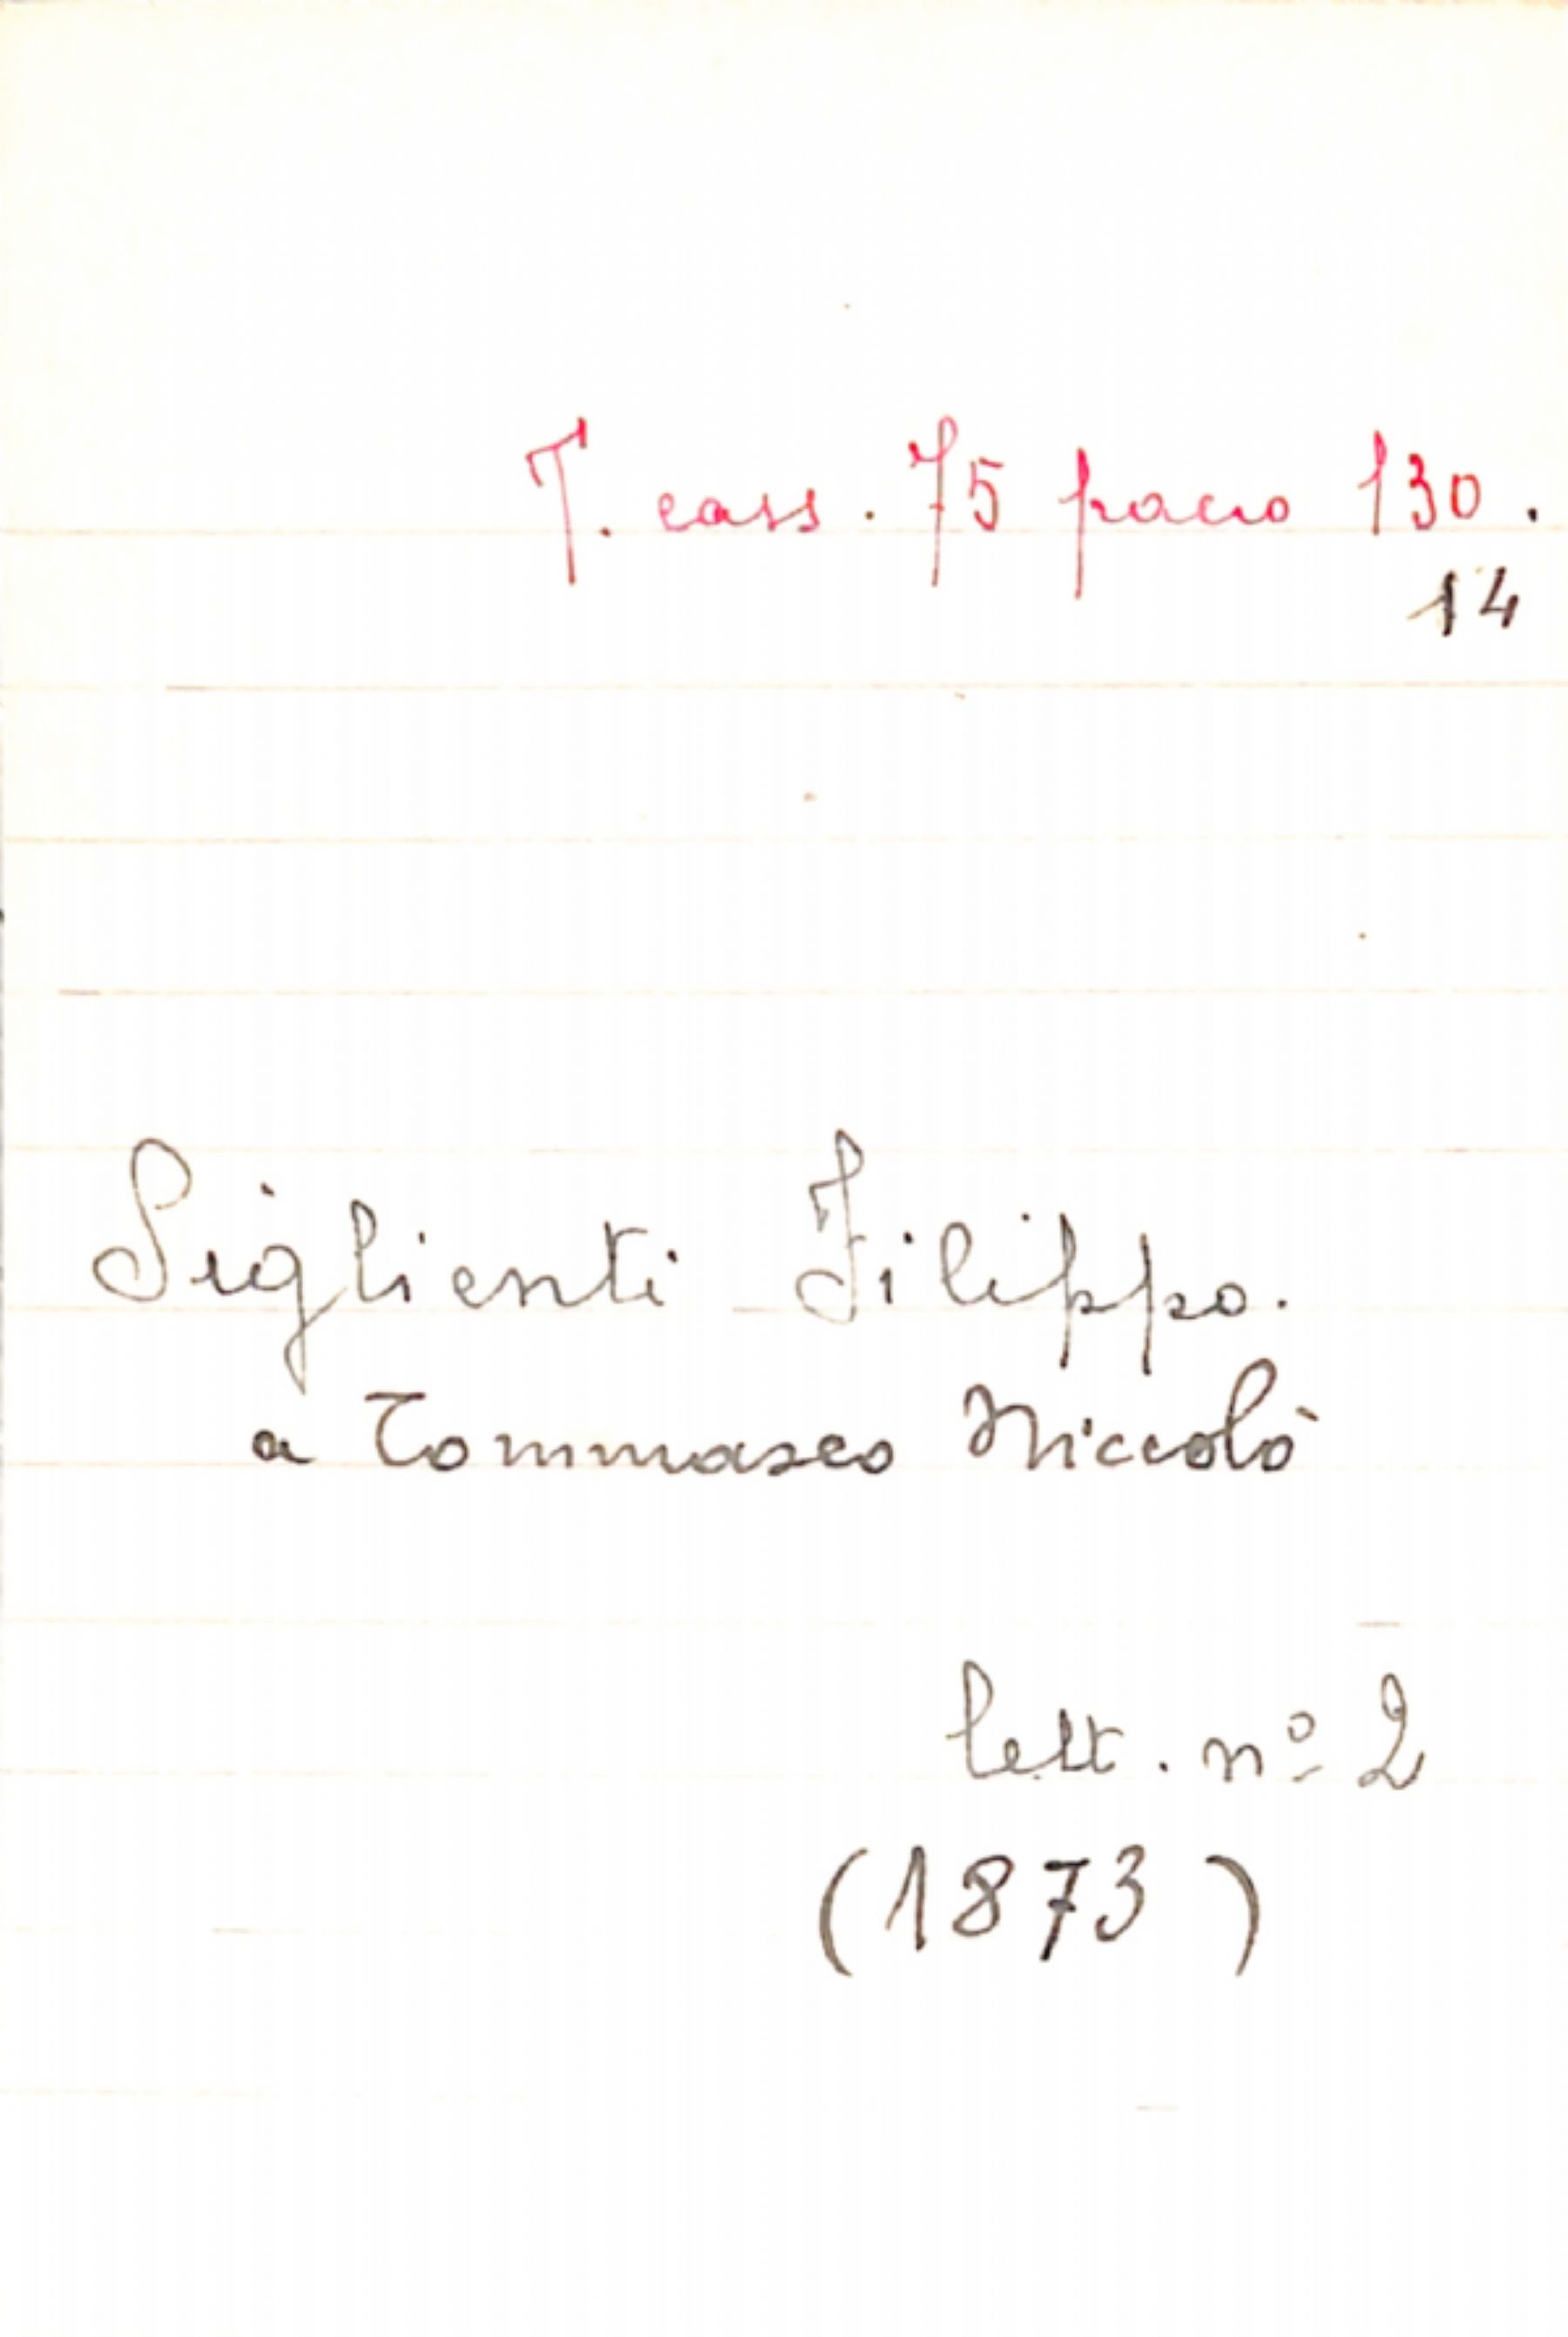 T. cass. 75 pacco 130.
14
Siglienti Filippo.
a Tommaseo Niccolò
lett. nº 2
(1873)